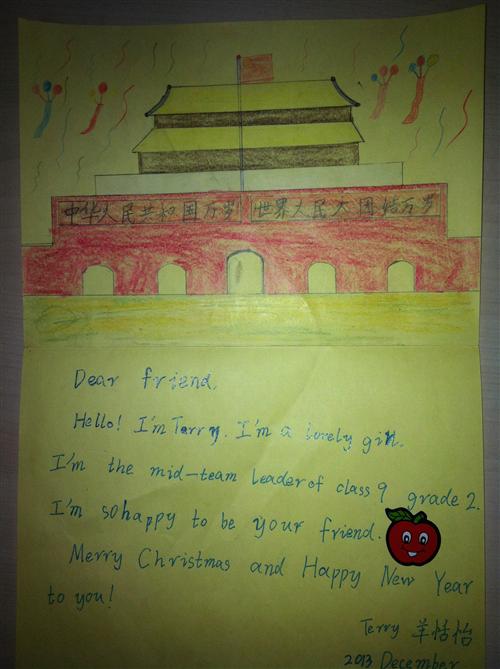 中华人民共和国万岁 世界人民大团结万岁
Dear friend,
Hello! I'm Terry. I'm a lovely girl.
I'm the mid-team leader of class 9 grade 2.
I'm so happy to be your friend.
Merry Christmas and Happy New Year
to you!
Terry 羊恬怡
2013 December